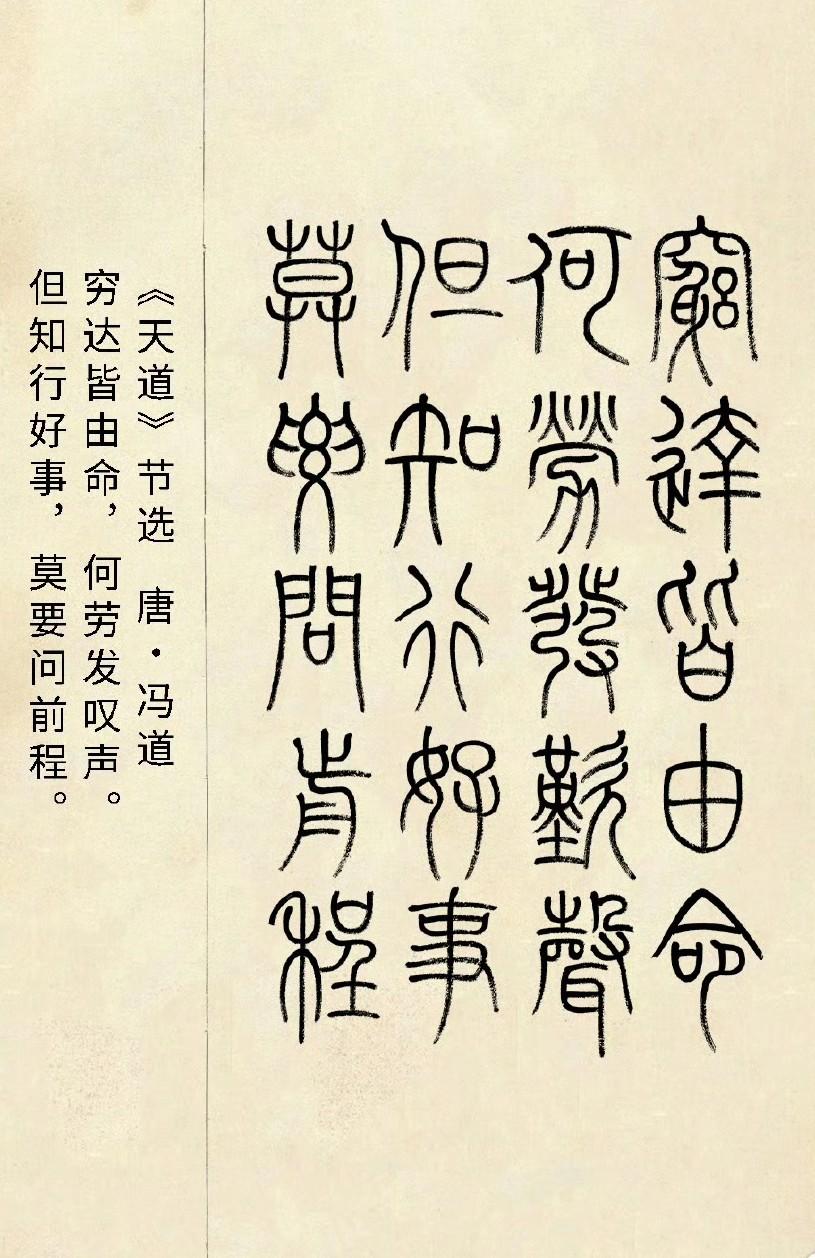 窮達皆由命
何勞發歎聲
但知行好事
莫要問歬程
《天道》节选 唐·冯道
穷达皆由命，何劳发叹声。
但知行好事，莫要问前程。